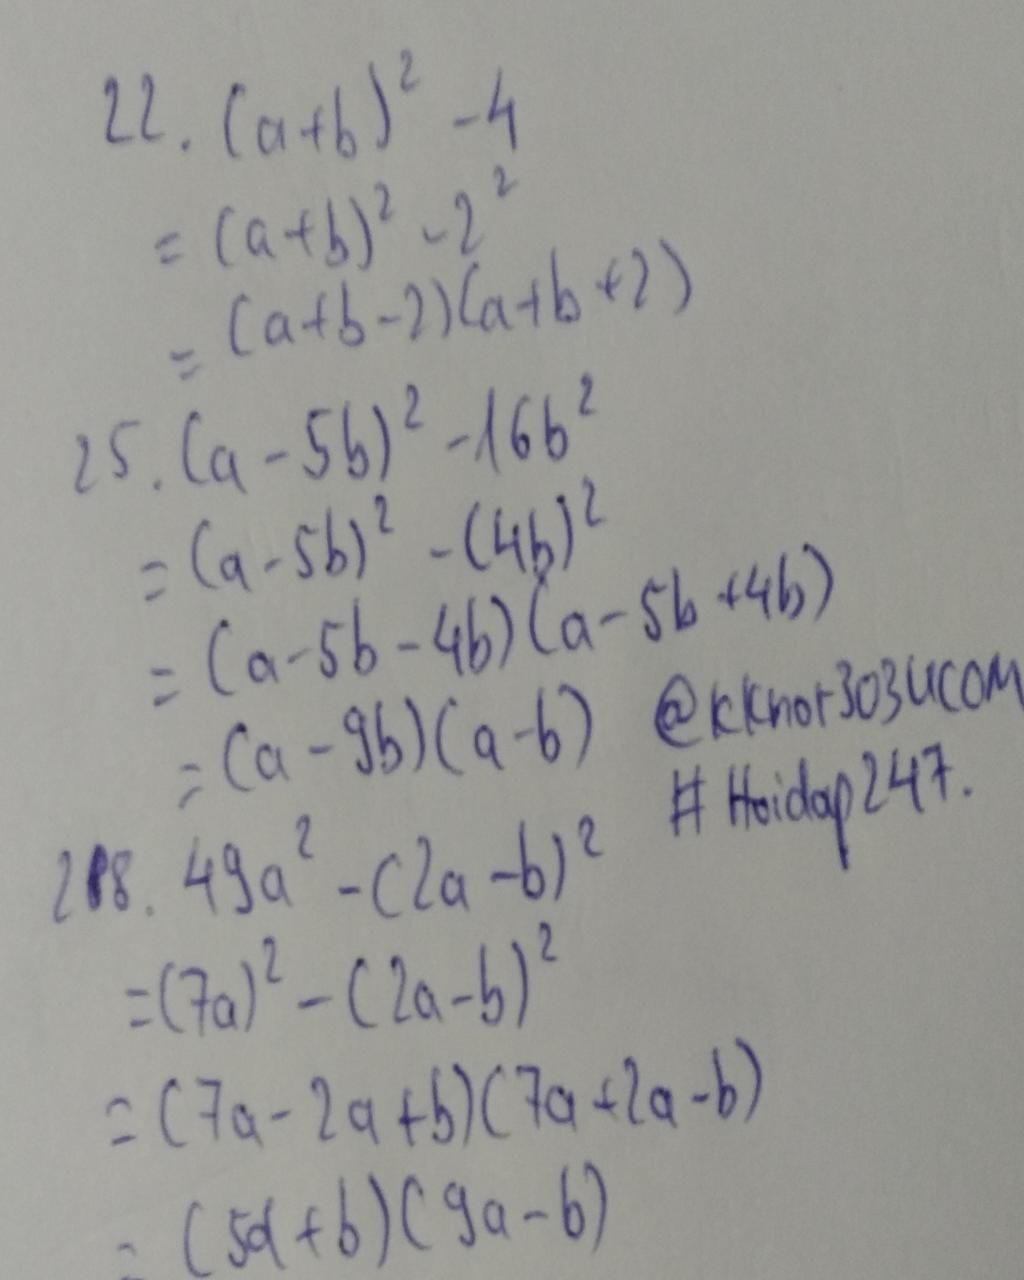 22. (a+b)² -4
= (a+b)² -2²
= (a+b-2)(a+b+2)
25. (a-5b)² -16b²
= (a-5b)² -(4b)²
= (a-5b-4b)(a-5b+4b)
= (a-9b)(a-b)
@kknor3034COM
# Hoidap247.
28. 49a² -(2a-b)²
=(7a)² -(2a-b)²
= (7a-2a+b)(7a+2a-b)
= (5a+b)(9a-b)